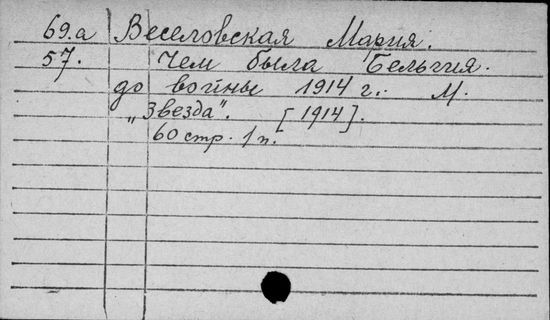 69.а Веселовская Мария.
57. Чем была Бельгия.
до войны 1914 г. М.
„Звезда". [1914].
60 стр. 1 п.